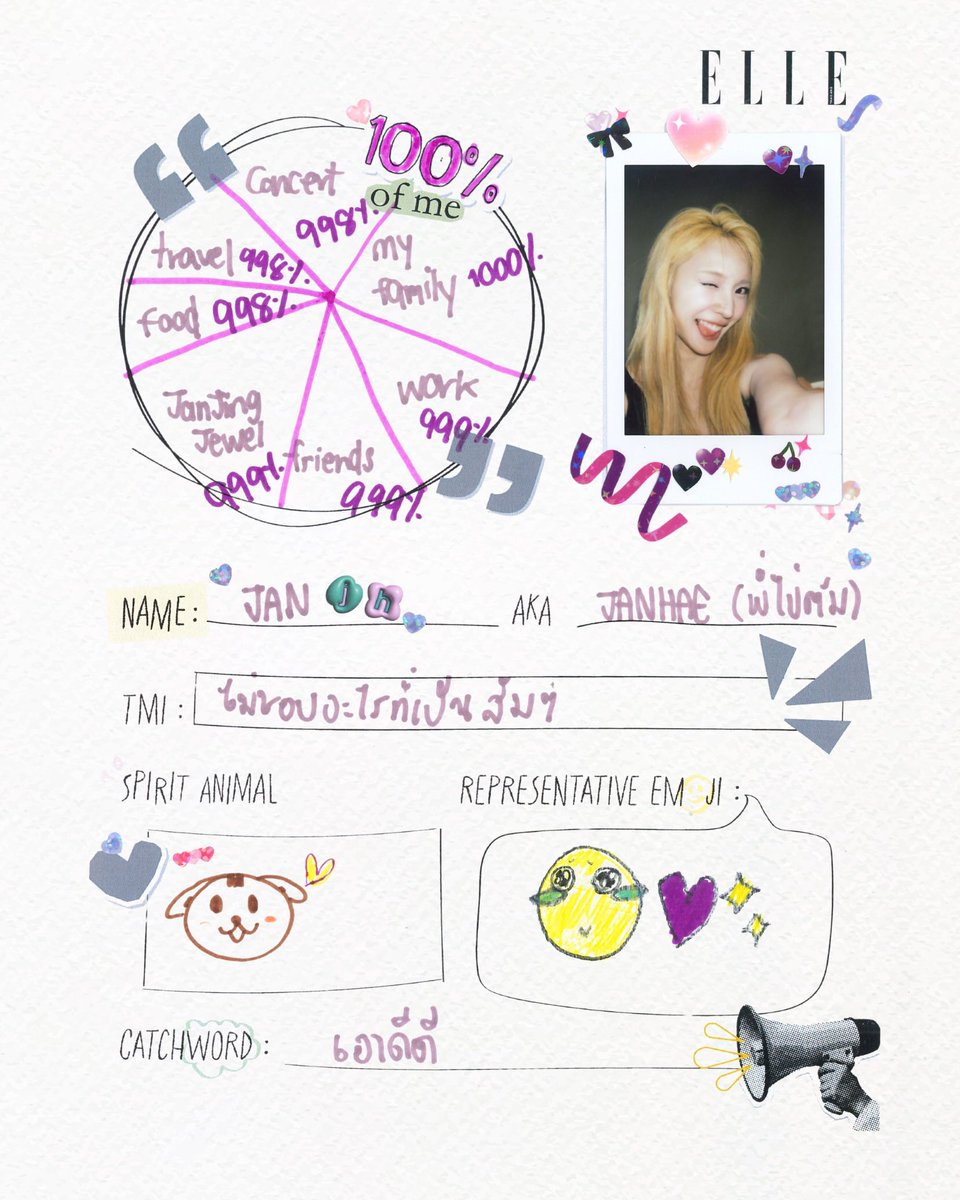 ELLE
100%
of me
Concert
998%
my
family 1000%
travel 998%
food 998%
work
999%
JanJing
Jewel
999%
friends
999%
NAME: JAN jh AKA JANHAE (พี่ไข่ต้ม)
TMI: ไม่ชอบอะไรที่เป็นส้มๆ
SPIRIT ANIMAL
REPRESENTATIVE EMOJI:
CATCHWORD: เอาดีดี